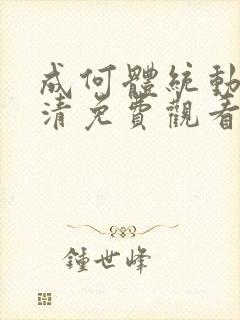 成何體統動
清免費觀看
鍾世峰